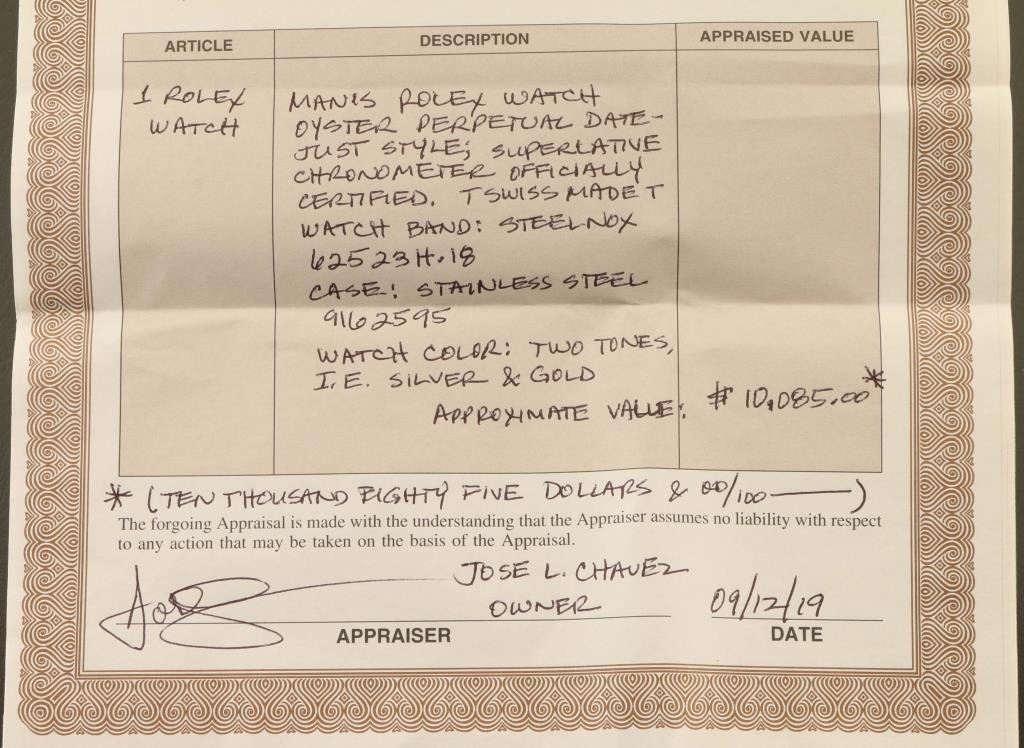 ARTICLE DESCRIPTION APPRAISED VALUE
1 ROLEX WATCH
MAN'S ROLEX WATCH
OYSTER PERPETUAL DATE-
JUST STYLE; SUPERLATIVE
CHRONOMETER OFFICIALLY
CERTIFIED. T SWISS MADE T
WATCH BAND: STEELNOX
62523H.18
CASE: STAINLESS STEEL
9162595
WATCH COLOR: TWO TONES,
I.E. SILVER & GOLD
APPROXIMATE VALUE: $ 10,085.00*
* (TEN THOUSAND EIGHTY FIVE DOLLARS & 00/100 ——)
The forgoing Appraisal is made with the understanding that the Appraiser assumes no liability with respect
to any action that may be taken on the basis of the Appraisal.
JOSE L. CHAVEZ
OWNER 09/12/19
APPRAISER DATE